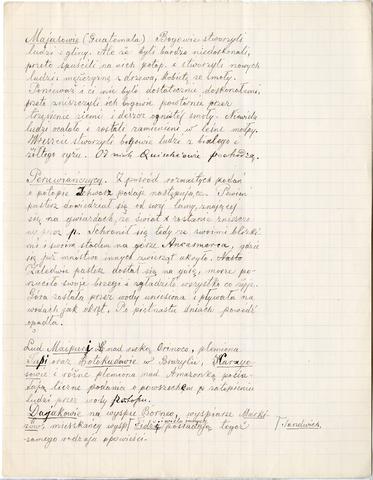 Majasowie (Guatemala) Bogowie stworzyli
ludzi z gliny. Ale że byli bardzo niedoskonali,
przeto spuścili na nich potop, i stworzyli nowych
ludzi: mężczyznę z drzewa, kobietę ze smoły.
Ponieważ i ci nie byli dostatecznie doskonałymi,
przeto zniszczyli ich bogowie powtórnie przez
trzęsienie ziemi i deszcz ognistej smoły. Niewielu
ludzi ocalało, i zostali zamienieni w leśne małpy.
Wreszcie stworzyli bogowie ludzi z białego i
żółtego ryżu. Od nich Quichéowie pochodzą.
Peruwiańczycy. Z pośród rozmaitych podań
o potopie podaje następujące. Pewien
pasterz dowiedział się od swej lamy, znającej
się na gwiazdach, że świat zostanie zniszczo-
ny przez p. Schronił się tedy ze swoimi blizki-
mi i swoim stadem na górze Ancasmarca, gdzie
się już mnóstwo innych zwierząt ukryło.
Zaledwie pasterz dostał się na górę, morze po-
rzuciło swoje brzegi i zgładziło wszystko co żyje.
Góra została przez wody uniesiona i pływała na
wodach jak okręt. Po piętnastu dniach powódź
opadła.
Lud Maipuri nad rzeką Orinoco, plemiona
Tupi oraz Botokudowie w Brazylii,
i różne plemiona nad Amazonką posia-
dają liczne podania o powszechnem zatopieniu
ludzi przez wody potopu.
Dajakowie na wyspie Borneo, wyspiarze
mieszkańcy wysp Fidżi i wielu innych posiadają tegoż
samego rodzaju opowieści.
Sandwich.